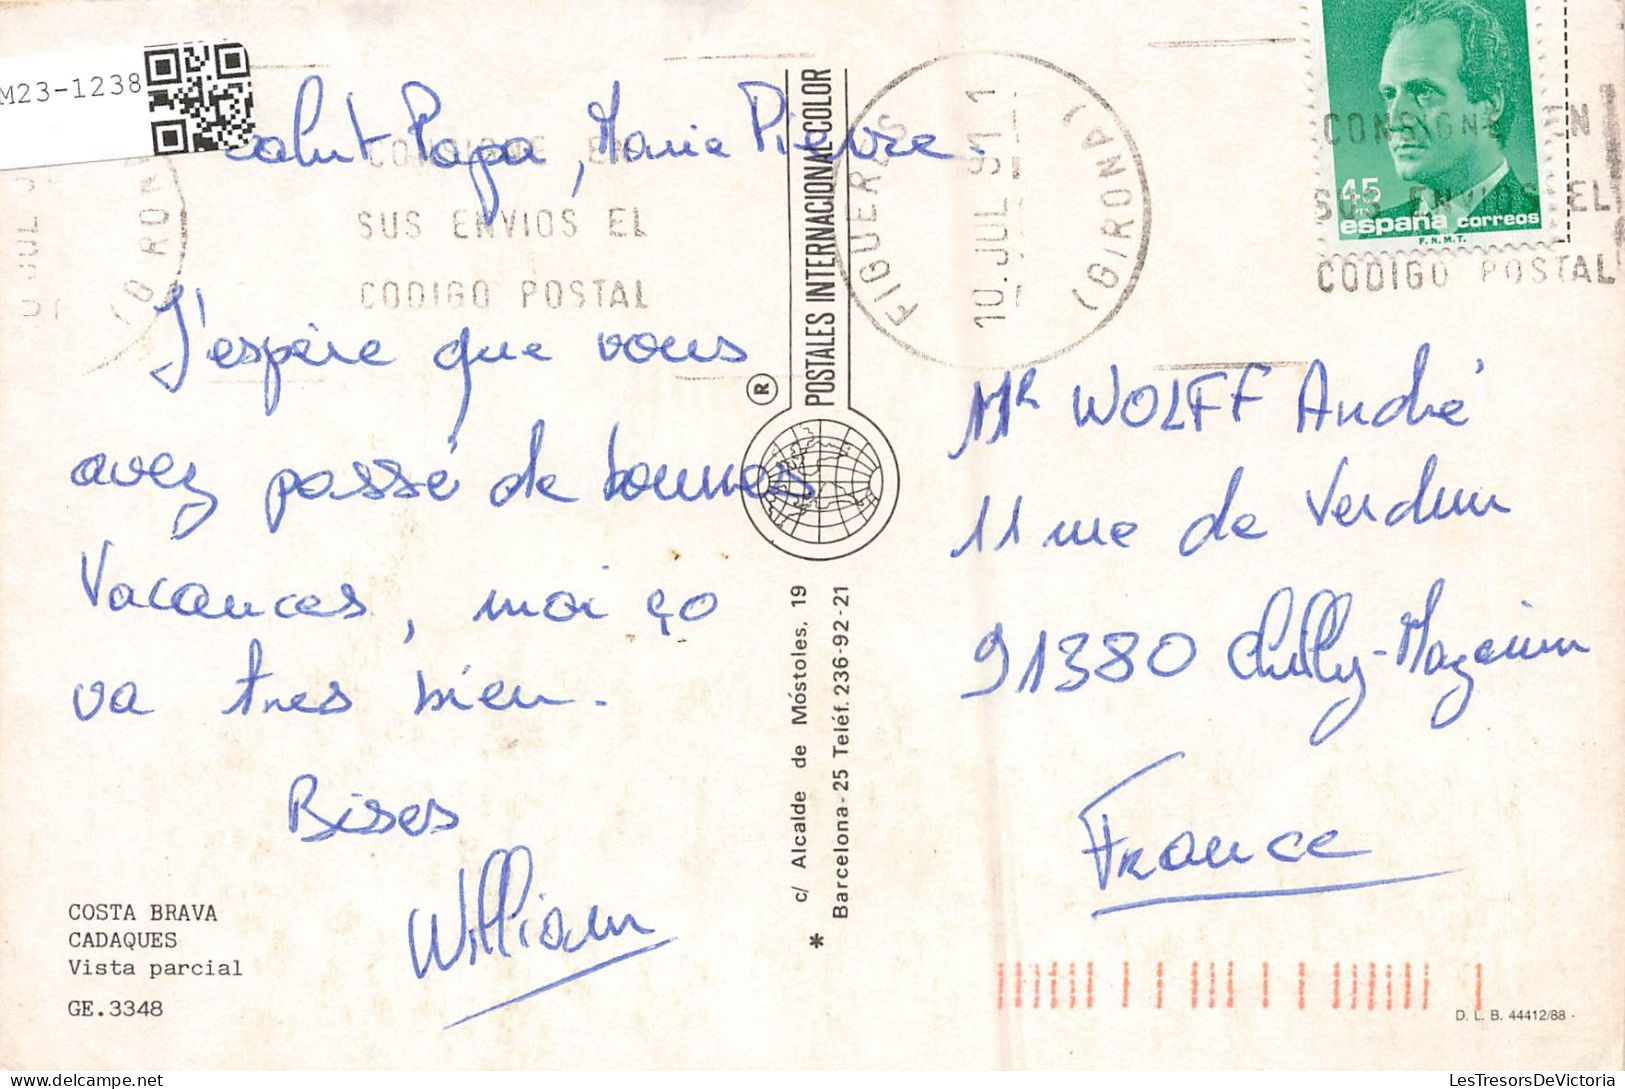 M23-1238
Salut Papa, Marie Pierre.
J'espère que vous
avez passé de bonnes
Vacances, moi ça
va tres bien.
Bises
William
COSTA BRAVA
CADAQUES
Vista parcial
GE.3348
CONSIGNE EN
SUS ENVIOS EL
CODIGO POSTAL
® POSTALES INTERNACIONAL COLOR
c/ Alcalde de Móstoles, 19
* Barcelona-25 Teléf. 236-92-21
FIGUERES
10.JUL 91
(GIRONA)
45
PTS
españa correos
F.N.M.T.
CONSIGNE EN
SUS ENVIOS EL
CODIGO POSTAL
Mr WOLFF André
11 rue de Verdun
91380 Chilly-Mazarin
France
D. L. B. 44412/88 -
LesTresorsDeVictoria